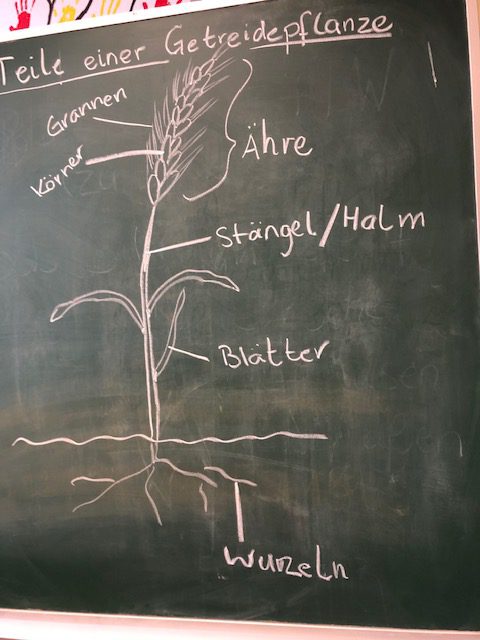 Teile einer Getreidepflanze
Grannen
Körner
Ähre
Stängel/Halm
Blätter
Wurzeln